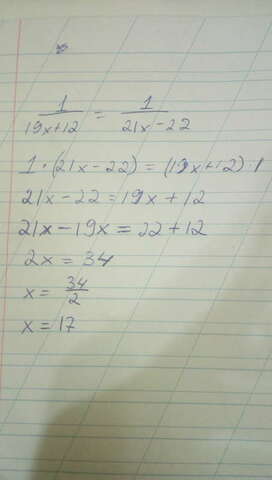 1/(19x+12) = 1/(21x-22)
1·(21x-22) = (19x+12)·1
21x-22 = 19x+12
21x-19x = 22+12
2x = 34
x = 34/2
x = 17